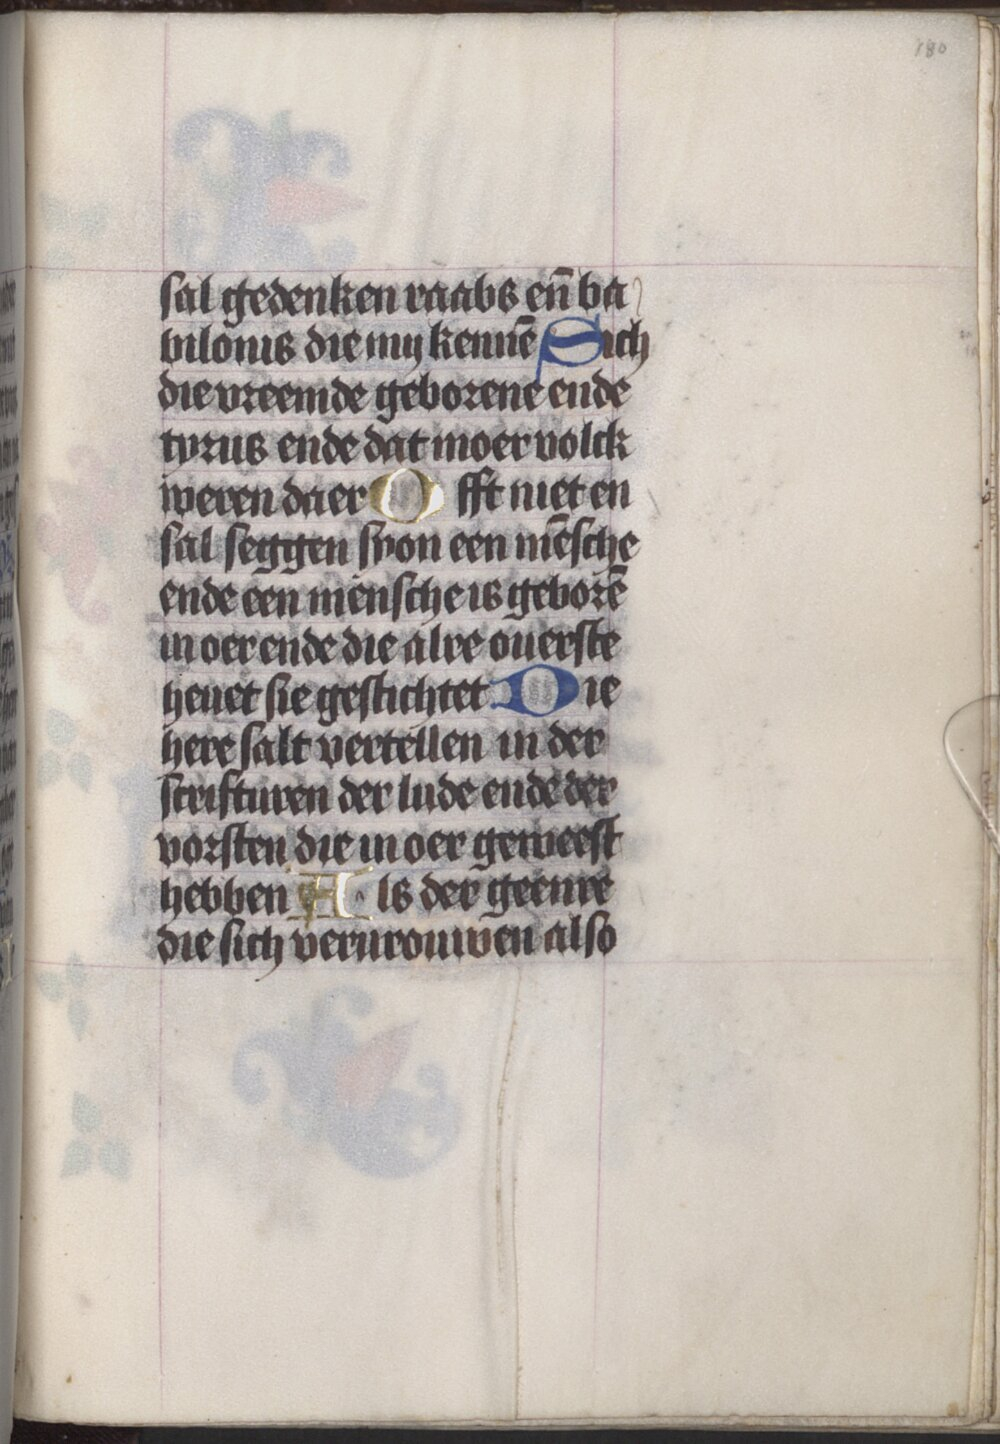 180
sal gedenken raabs en̄ ba
bilonis die my kennē Sich
die vreemde geborene ende
tyrus ende dat moer volck
weren daer Offt niet en
sal seggen syon een mēsche
ende een mensche is geborē
in oer ende die alre ouerste
heuet sie gestichtet Die
here salt vertellen in der
scrifturen der lude ende der
vorsten die in oer geweest
hebben Als der geenre
die sich vervrouwen also